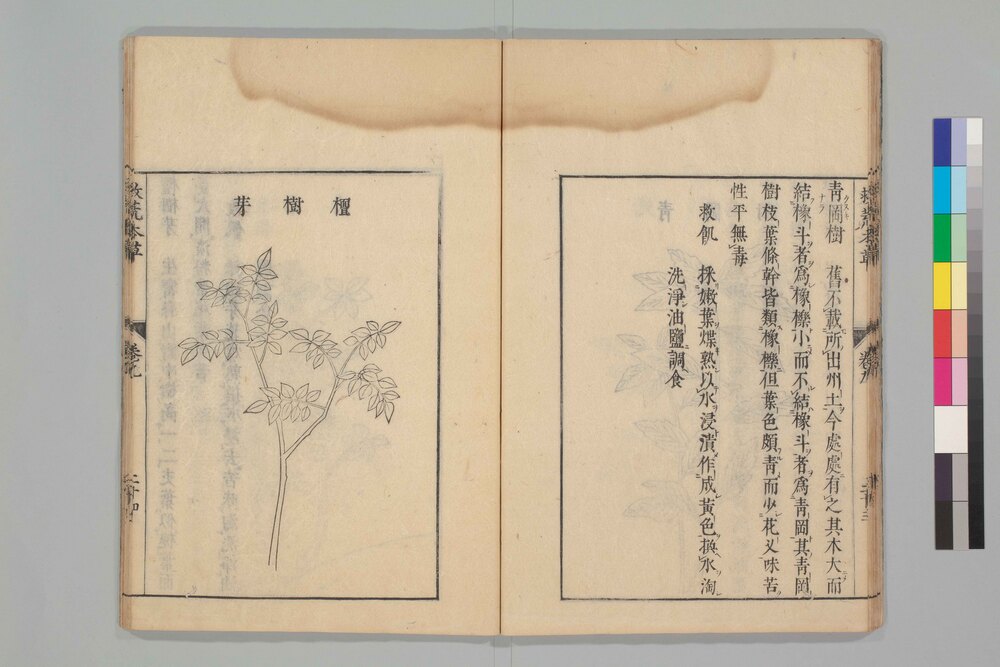 青岡樹　舊不載所出州土今處處有之其木大而
結橡斗者爲橡櫟小而不結橡斗者爲青岡其青岡
樹枝葉條幹皆類橡櫟但葉色頗青而少花又味苦
性平無毒
救飢　採嫩葉煠熟以水浸漬作成黃色換水淘
洗淨油鹽調食
檀樹芽
救荒本草
二十四